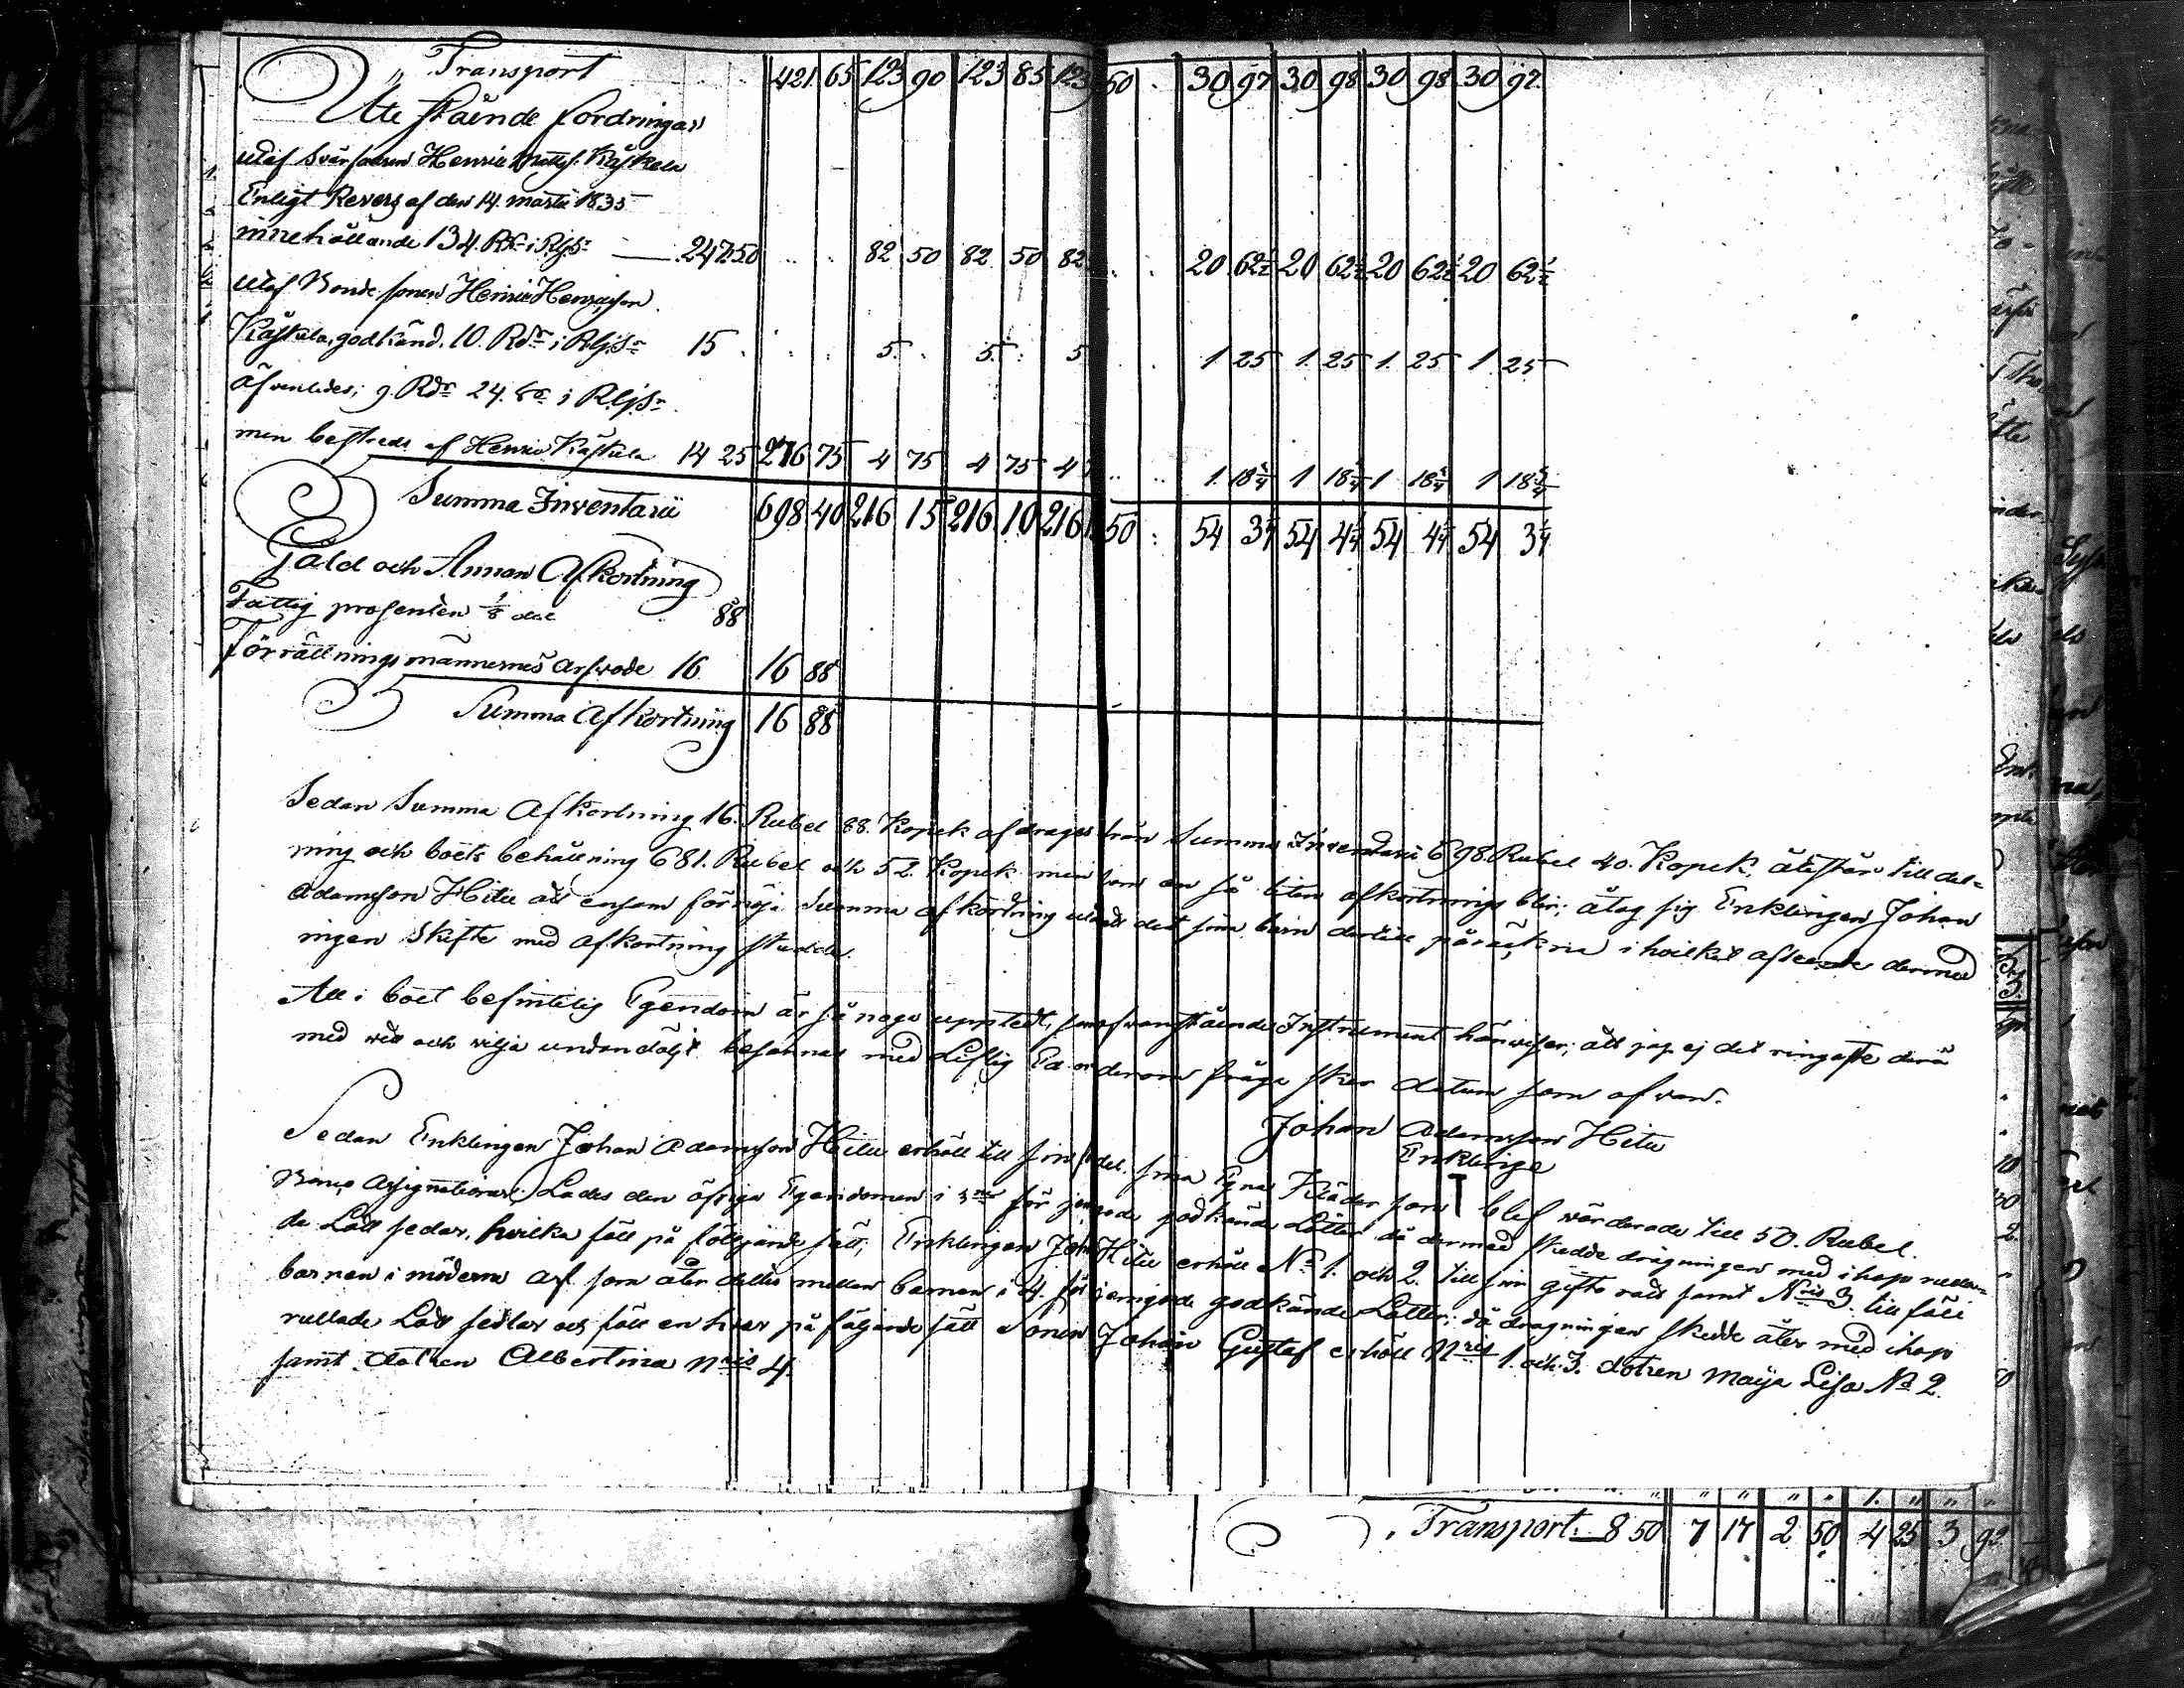 Transport 421 65 123 90 123 85 123 50 30 97 30 98 30 98 30 97
Ute stående fordringar
utaf Svärfadren Henric Mattss. Kåskela
Enligt Revers af den 14. martii 1835
innehållande 134. Rdr i Rgs: 247 50 82 50 82 50 82 20 62½ 20 62½ 20 62½ 20 62½
utaf Bonde sonen Henric Henricsson
Kåskela, godkänd. 10. Rdr i Rgs: 15 5 5 5 1 25 1 25 1 25 1 25
äfvenledes; 9. Rdr 24. i Rgs:
men bestreds af Henric Kåskela 14 25 276 75 4 75 4 75 4 1 18¾ 1 18¾ 1 18¾ 1 18¾
Summa Inventarii 698 40 216 15 216 10 216 50 54 3¼ 54 4¼ 54 4¼ 54 3¼
Gäld och Annan Afkortning
Fattig prosenten ⅛ del 88
Förrättnings männernes arfvode 16 16 88
Summa Afkortning 16 88
Sedan Summa Afkortning 16. Rubel 88. Kopek afdrages från Summa Inventarii 698. Rubel 40. Kopek. återstår till del=
ning och boets behållning 681. Rubel och 52. Kopek men som en så liten afkortnings blir; åtog sig Enklingen Johan
Adamsson Hitu att ensam förnöja Summa afkortning utan det sina barn dertill påräkna i hvilket afseende dermed
ingen Skifte med afkortning skedde.
All i boet befintelig Egendom är så noga upptedt, som ofvanstående Instrument hänviser; att jag ej det ringaste derå
med vett och vilja undandöljt besannas med Liflig Ed om derom fråga sker datum som ofvan.
Johan Adamsson Hitu
Enklinge
Sedan Enklingen Johan Adamsson Hitu erhöll till sin fördel sina Egna Kläder som blef värderade till 50. Rubel.
Banco Assignationer: Lades den öfriga Egendomen i 3ne för jemgoda godkände Lotter då dermed skedde dragningen med ihop rulla=
de Lott sedlar, hvilka föll på följande sätt; Enklingen Joh: Hitu erhöll No 1. och 2. till sin gifto rätt samt Nris 3. till föll
barnen i möderne arf som åter deltes mellan barnen i 4. för jemgode godkände Lotter; då dragningen skedde åter med ihop
rullade Lott sedlar och föll en hvar på följande sätt Sonen Johan Gustaf erhöll Nris 1. och 3. dotren Maija Lisa No 2.
samt dotren Albertina Nris 4.
Transport: 8 50 7 17 2 50 4 25 3 92